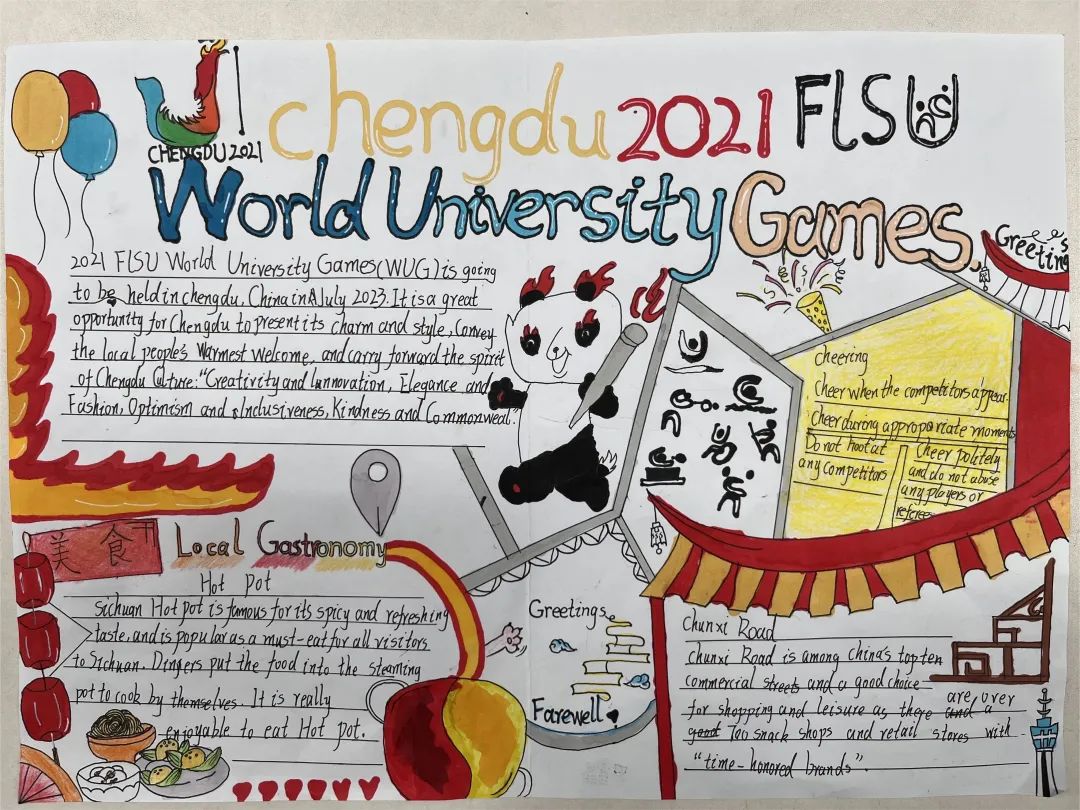 CHENGDU 2021
Chengdu 2021 FISU
World University Games
2021 FISU World University Games(WUG) is going
to be held in chengdu, China in July 2023. It is a great
opportunity for Chengdu to present its charm and style, Convey
the local people's Warmest Welcome, and carry forward the spirit
of Chengdu Culture: "Creativity and Innovation, Elegance and
Fashion, Optimism and Inclusiveness, Kindness and Commonweal."
Greetings
cheering
Cheer when the competitors appear.
Cheer during appropriate moments
Do not hoot at
any competitors
Cheer politely
and do not abuse
any players or
referees
美食
Local Gastronomy
Hot Pot
Sichuan Hot pot is famous for its spicy and refreshing
taste, and is popular as a must-eat for all visitors
to Sichuan. Dingers put the food into the steaming
pot to cook by themselves. It is really
enjoyable to eat Hot pot.
Greetings
Farewell
Chunxi Road
Chunxi Road is among China's top ten
commercial streets and a good choice
for shopping and leisure as there are over
700 snack shops and retail stores with
"time-honored brands".